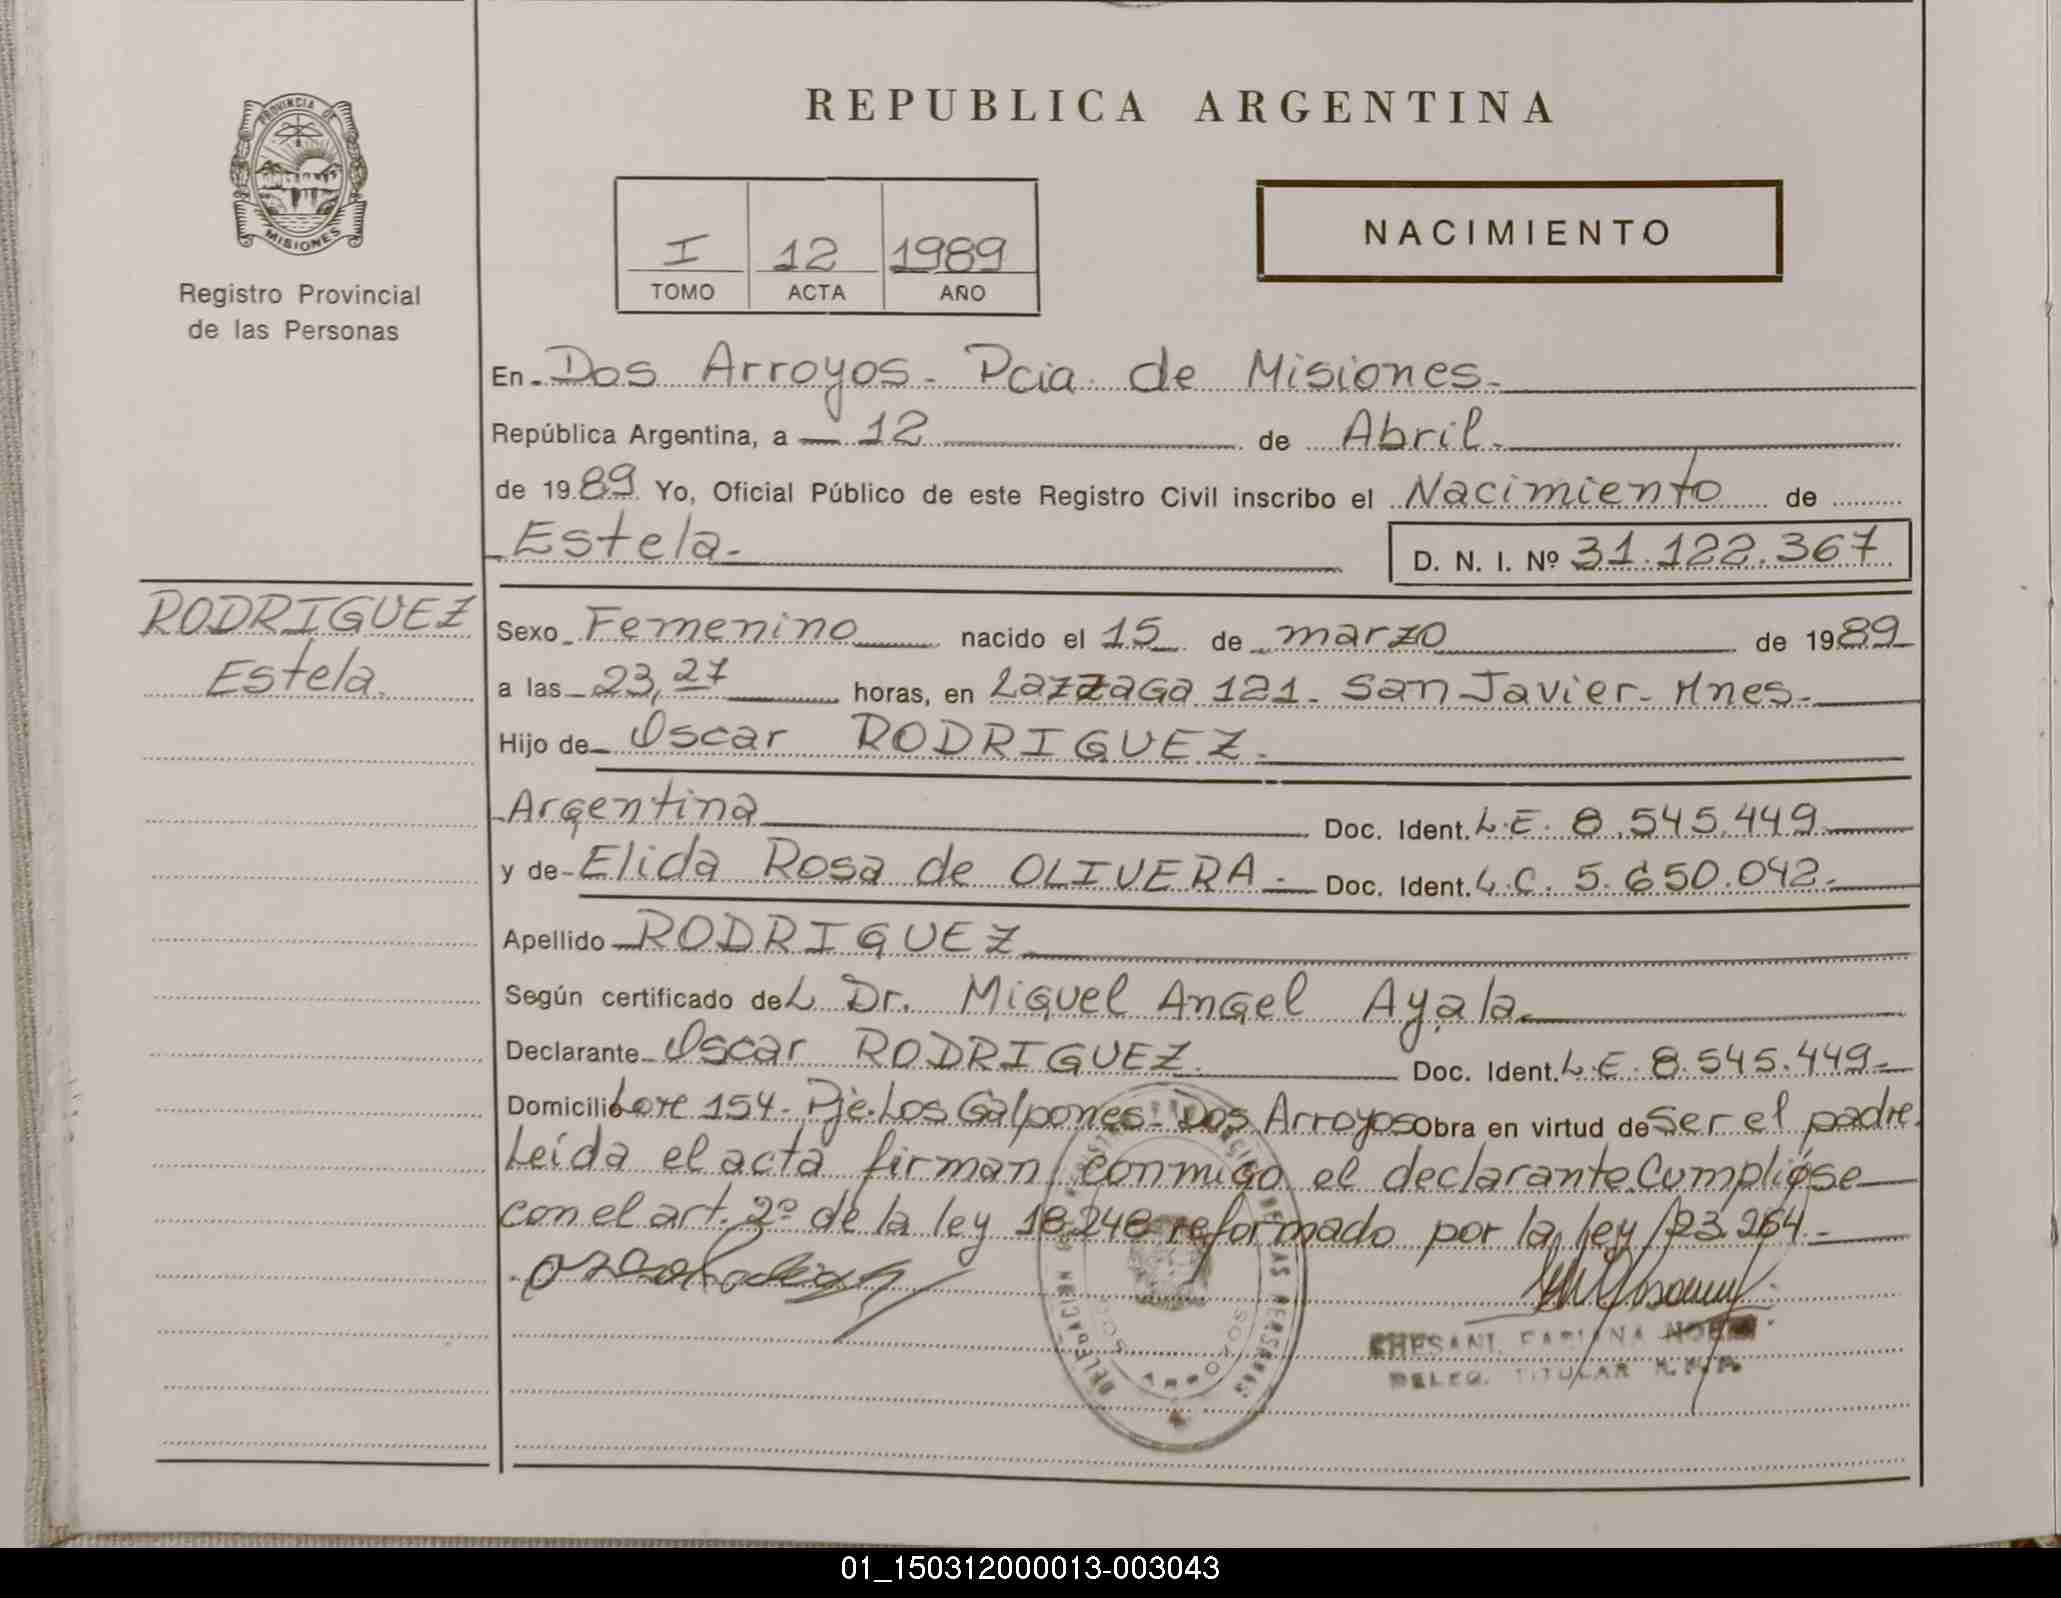 REPUBLICA ARGENTINA
PROVINCIA DE
MISIONES
Registro Provincial
de las Personas
I 12 1989
TOMO ACTA AÑO
NACIMIENTO
En Dos Arroyos - Pcia. de Misiones.
República Argentina, a 12 de Abril.
de 1989 Yo, Oficial Público de este Registro Civil inscribo el Nacimiento de
Estela. D. N. I. Nº 31.122.367
RODRIGUEZ
Estela.
Sexo Femenino nacido el 15 de marzo de 1989
a las 23,27 horas, en Lazzaga 121 - San Javier - Mnes.
Hijo de Oscar RODRIGUEZ.
Argentina Doc. Ident. L.E. 8.545.449
y de Elida Rosa de OLIVERA. Doc. Ident. L.C. 5.650.042.
Apellido RODRIGUEZ
Según certificado del Dr. Miguel Angel Ayala.
Declarante Oscar RODRIGUEZ. Doc. Ident. L.E. 8.545.449.
Domicilio Lote 154 - Pje. Los Galpones - Dos Arroyos obra en virtud de ser el padre.
Leída el acta firman conmigo el declarante. Cumplióse
con el art. 2º de la ley 18.248 reformado por la ley 23.264.
DELEGACION
DE LAS PERSONAS
DOS ARROYOS
FABIANA NOEMI
DELEG. TITULAR
01_150312000013-003043